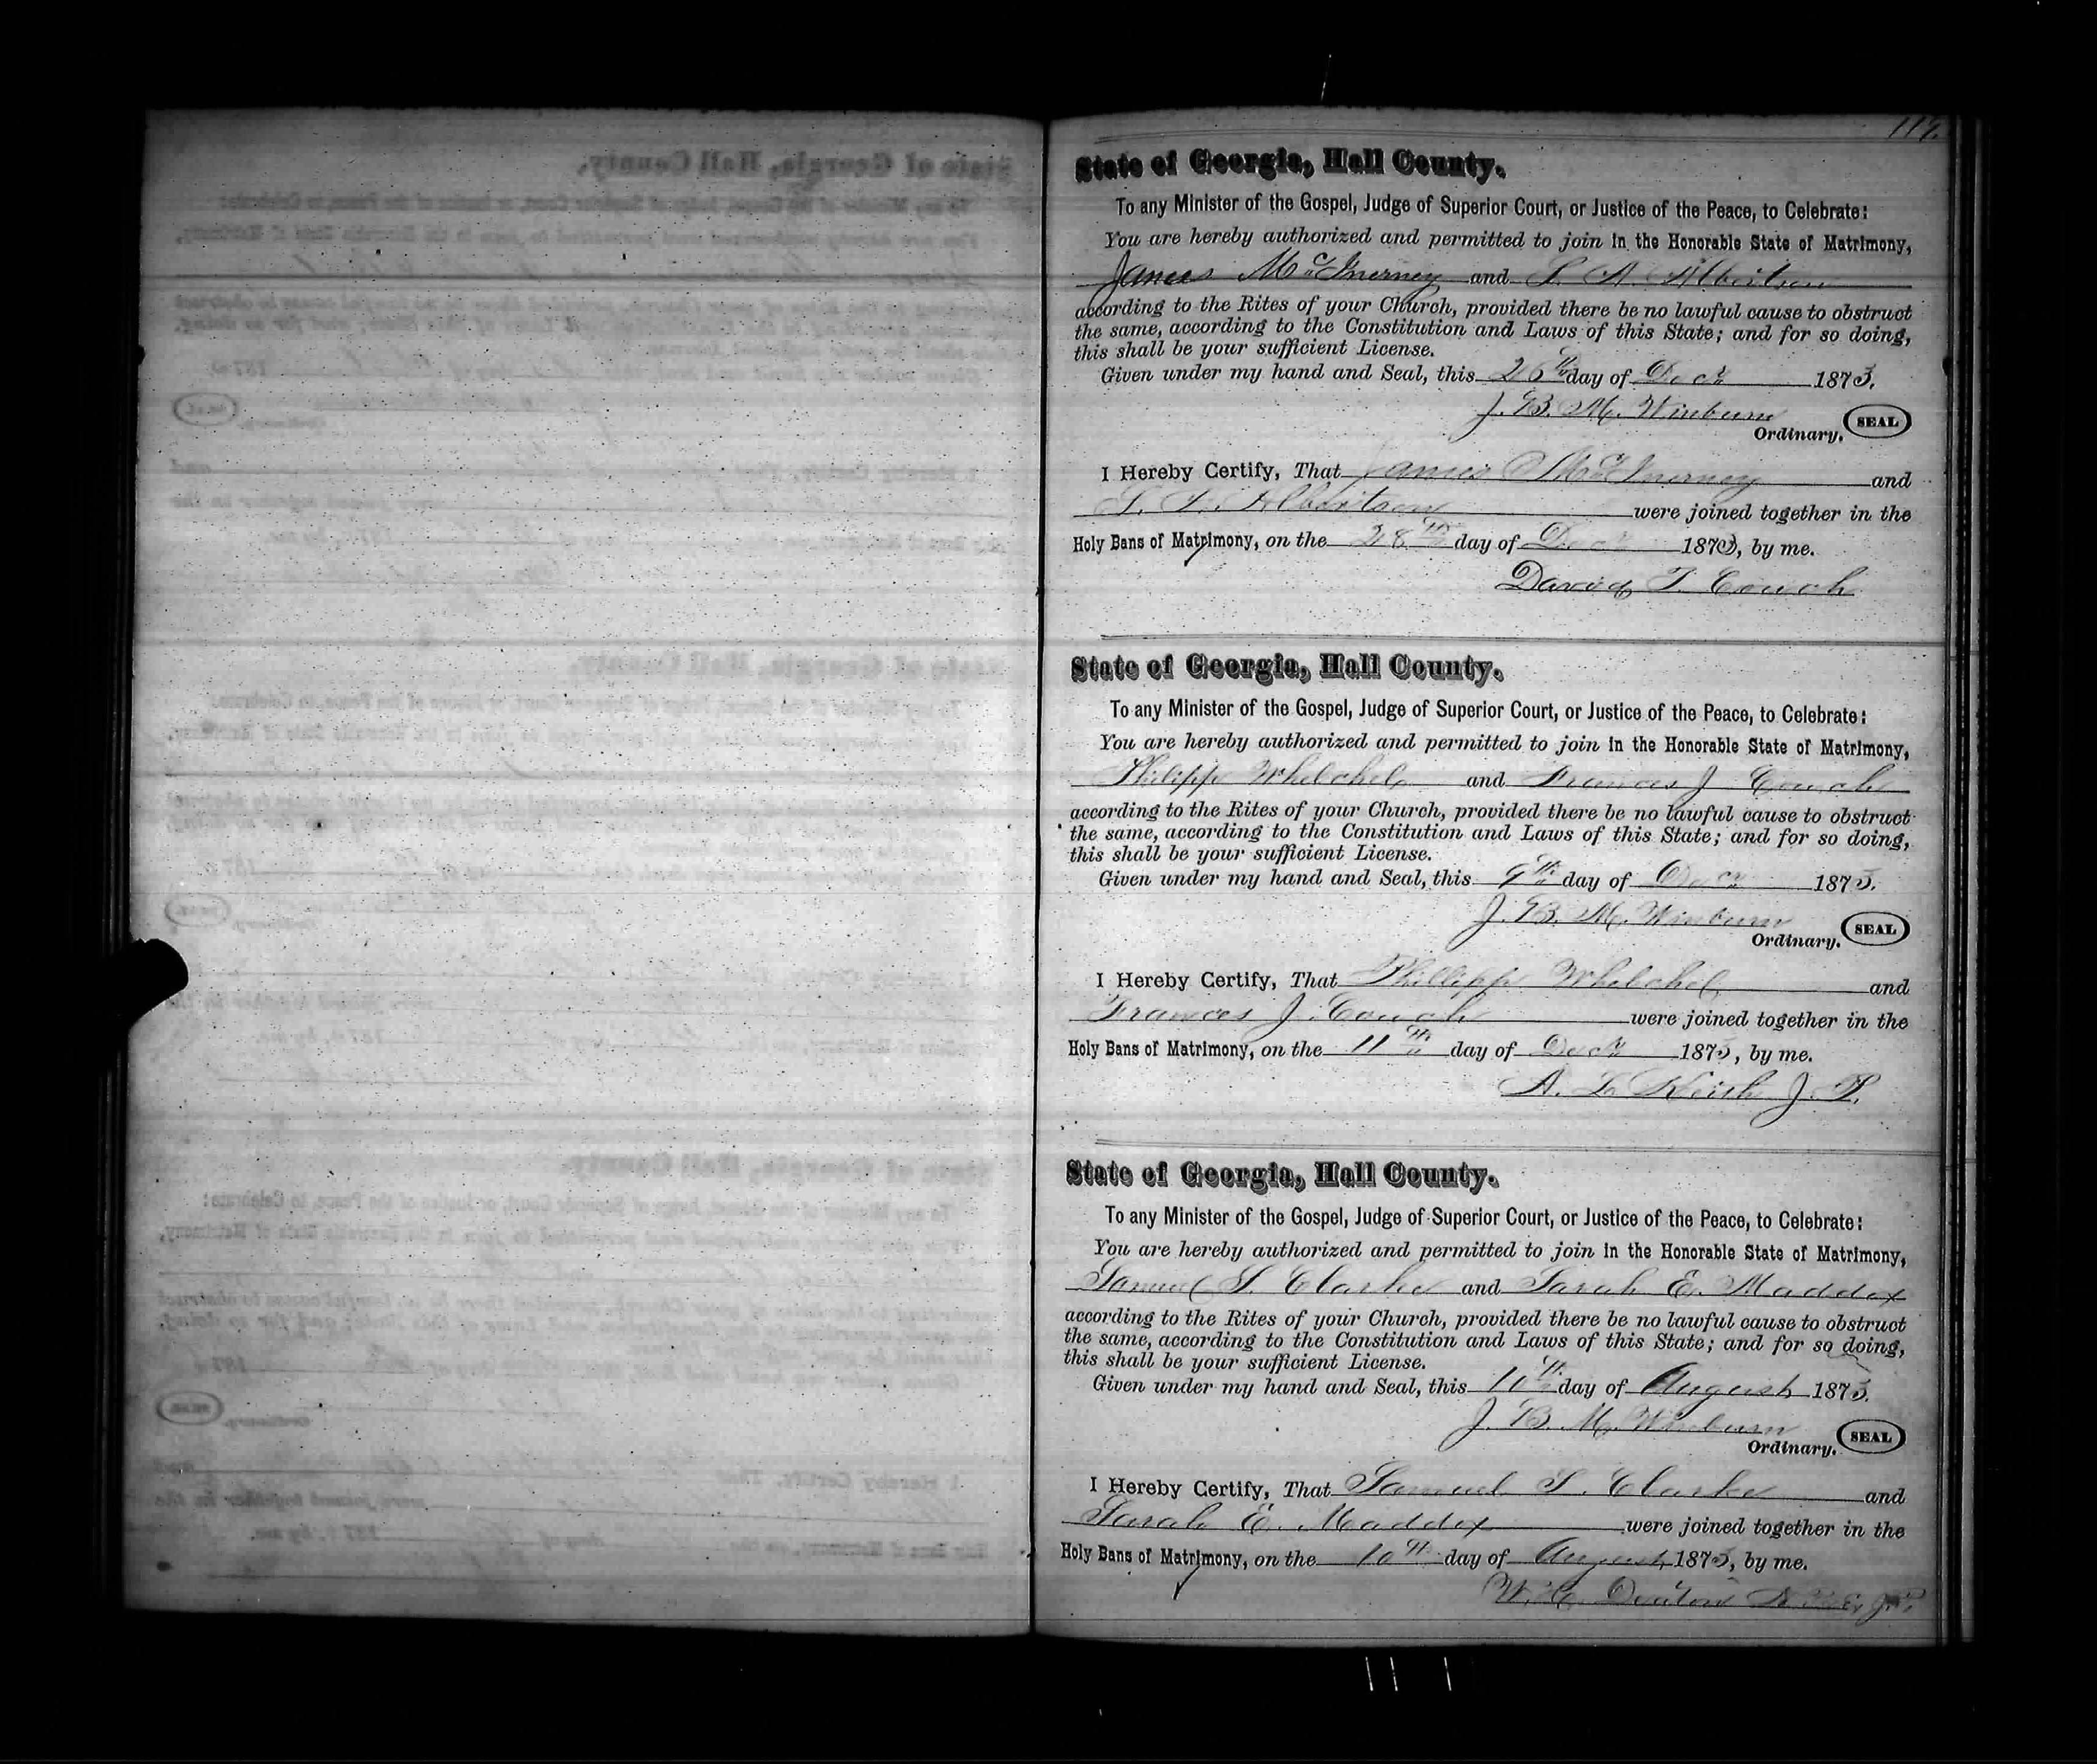 117.
State of Georgia, Hall County.
To any Minister of the Gospel, Judge of Superior Court, or Justice of the Peace, to Celebrate:
You are hereby authorized and permitted to join in the Honorable State of Matrimony,
James McInerney and S. A. Albertson
according to the Rites of your Church, provided there be no lawful cause to obstruct
the same, according to the Constitution and Laws of this State; and for so doing,
this shall be your sufficient License.
Given under my hand and Seal, this 26th day of Decr 1873.
J. B. M. Winburn SEAL
Ordinary.
I Hereby Certify, That James McInerney and
Albertson were joined together in the
Holy Bans of Matrimony, on the 28th day of Decr 1873, by me.
David T. Couch
State of Georgia, Hall County.
To any Minister of the Gospel, Judge of Superior Court, or Justice of the Peace, to Celebrate:
You are hereby authorized and permitted to join in the Honorable State of Matrimony,
Philipp Whelchel and Frances J Couch
according to the Rites of your Church, provided there be no lawful cause to obstruct
the same, according to the Constitution and Laws of this State; and for so doing,
this shall be your sufficient License.
Given under my hand and Seal, this 9th day of Decr 1873.
J. B. M. Winburn SEAL
Ordinary.
I Hereby Certify, That Phillipp Whelchel and
Frances J. Couch were joined together in the
Holy Bans of Matrimony, on the 11th day of Decr 1873, by me.
A. L. Keith J. P.
State of Georgia, Hall County.
To any Minister of the Gospel, Judge of Superior Court, or Justice of the Peace, to Celebrate:
You are hereby authorized and permitted to join in the Honorable State of Matrimony,
Samuel S. Clarke and Sarah E. Maddox
according to the Rites of your Church, provided there be no lawful cause to obstruct
the same, according to the Constitution and Laws of this State; and for so doing,
this shall be your sufficient License.
Given under my hand and Seal, this 10th day of August 1873.
J. B. M. Winburn SEAL
Ordinary.
I Hereby Certify, That Samuel S. Clarke and
Sarah E. Maddox were joined together in the
Holy Bans of Matrimony, on the 10th day of August 1873, by me.
W. H. Denton